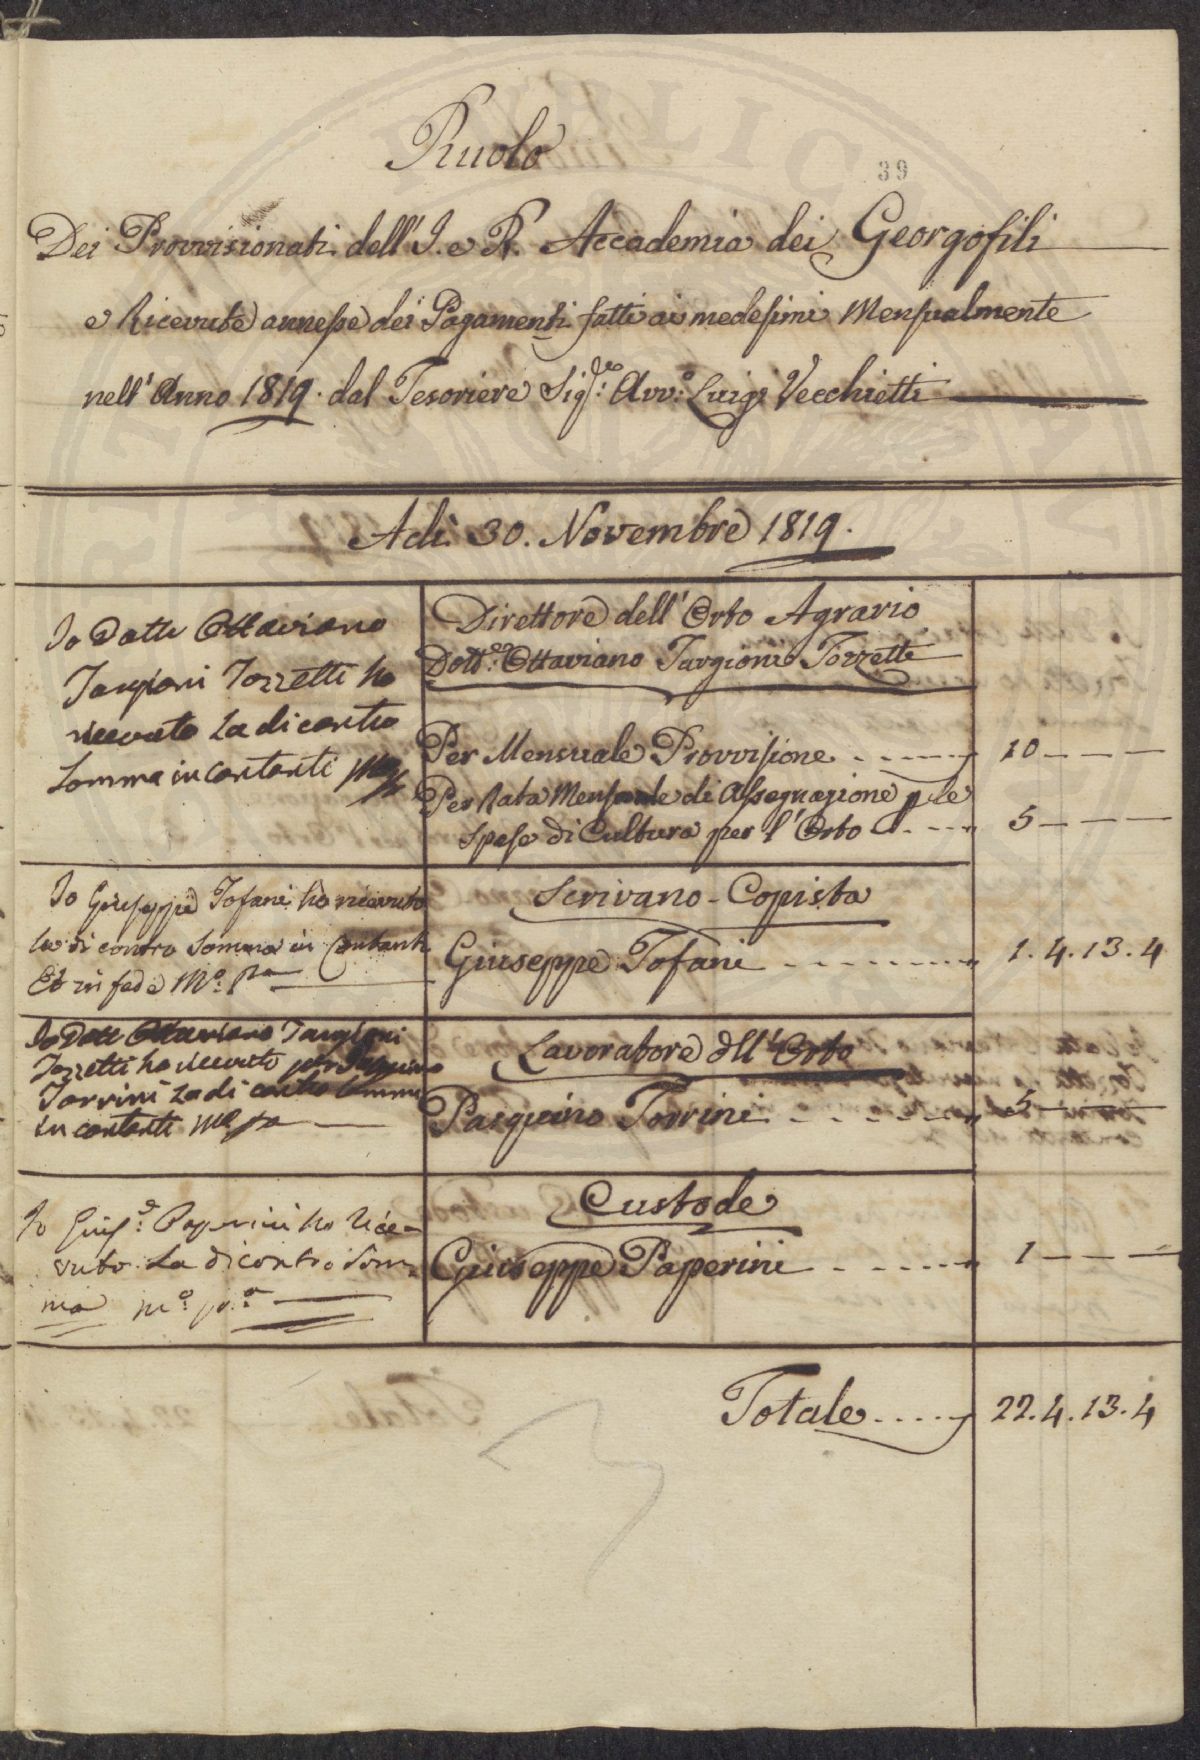 39
Ruolo
Dei Provvisionati dell'I. e R. Accademia dei Georgofili
e Ricevute annesse dei Pagamenti fatti ai medesimi Mensualmente
nell'Anno 1819. dal Tesoriere Sig.re Avv.o Luigi Vecchietti
Adì 30. Novembre 1819.
Io Dotte Ottaviano
Targioni Tozzetti ho
ricevuto la di contro
Somma in contanti mo pa
Direttore dell'Orto Agrario
Dott.re Ottaviano Targioni Tozzetti
Per Mensuale Provvisione ...... 10 — — —
Per Rata Mensuale di Assegnazione p le
Spese di Cultura per l'Orto .... 5 — — —
Io Giuseppe Tofani ho ricevuto
la di contro Somma in Contanti
Et in fede M.o pa
Scrivano-Copista
Giuseppe Tofani ......... 1. 4. 13. 4
Io Dott Ottaviano Targioni
Tozzetti ho ricevuto per Pasquino
Torrini la di contro Somma
in contanti mo pa
Lavoratore dell'Orto
Pasquino Torrini ........ 5 — — —
Io Gius.e Paperini ho rice-
vuto la di contro Som-
ma m.o p.a
Custode
Giuseppe Paperini ....... 1 — — —
Totale ..... 22. 4. 13. 4